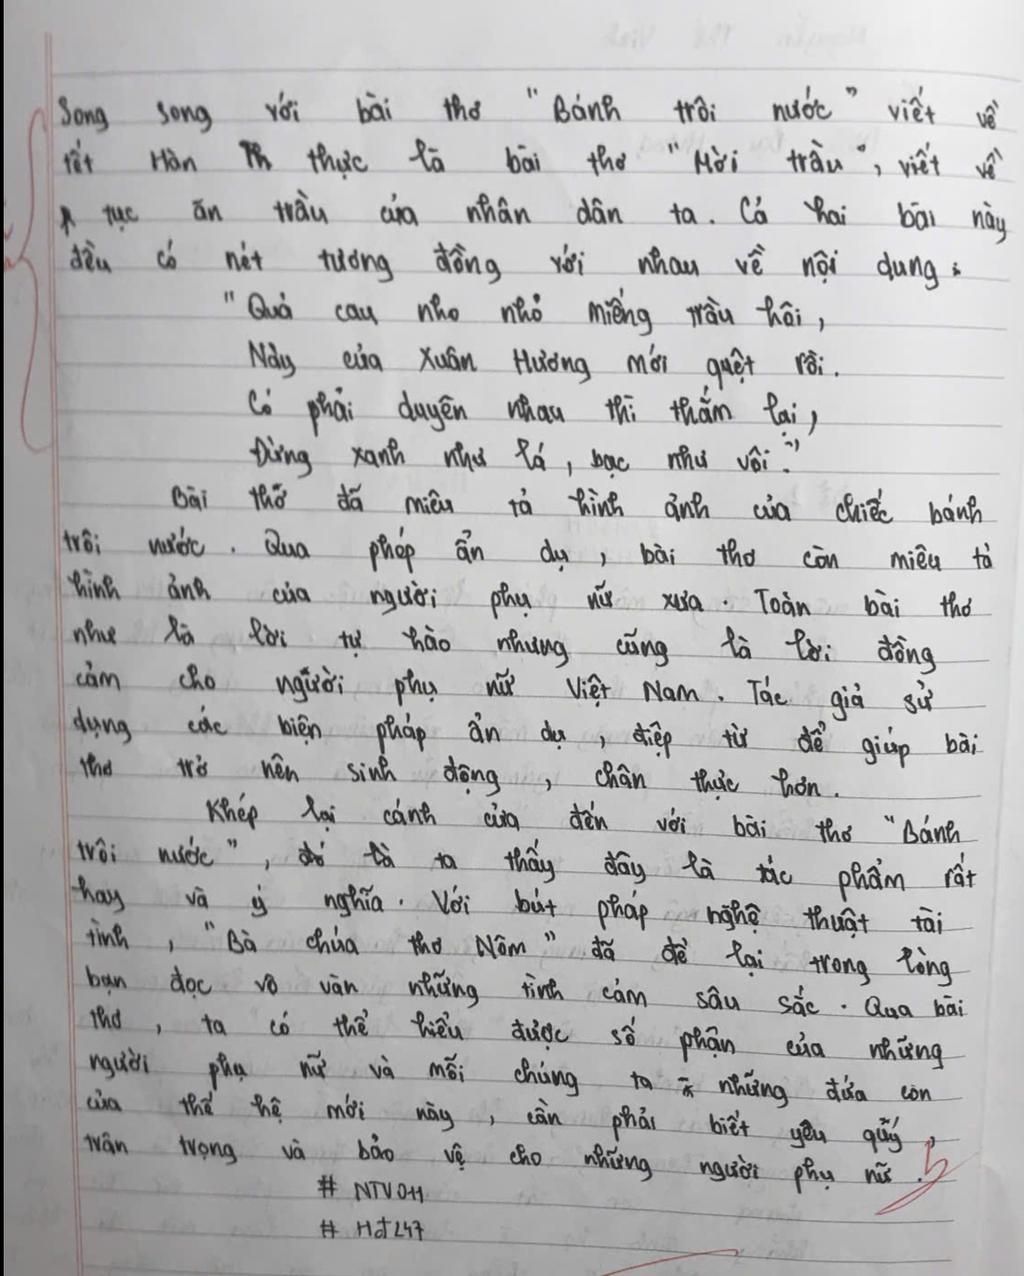 Song song với bài thơ "Bánh trôi nước" viết về
tết Hàn thực là bài thơ "Mời trầu", viết về
tục ăn trầu của nhân dân ta. Cả hai bài này
đều có nét tương đồng với nhau về nội dung:
"Quả cau nho nhỏ miếng trầu hôi,
Này của Xuân Hương mới quệt rồi.
Có phải duyên nhau thì thắm lại,
Đừng xanh như lá, bạc như vôi."
Bài thơ đã miêu tả hình ảnh của chiếc bánh
trôi nước. Qua phép ẩn dụ, bài thơ còn miêu tả
hình ảnh của người phụ nữ xưa. Toàn bài thơ
như là lời tự hào nhưng cũng là lời đồng
cảm cho người phụ nữ Việt Nam. Tác giả sử
dụng các biện pháp ẩn dụ, điệp từ để giúp bài
thơ trở nên sinh động, chân thực hơn.
Khép lại cánh cửa đến với bài thơ "Bánh
trôi nước", đó là ta thấy đây là tác phẩm rất
hay và ý nghĩa. Với bút pháp nghệ thuật tài
tình, "Bà chúa thơ Nôm" đã để lại trong lòng
bạn đọc vô vàn những tình cảm sâu sắc. Qua bài
thơ, ta có thể hiểu được số phận của những
người phụ nữ và mỗi chúng ta những đứa con
của thế hệ mới này, cần phải biết yêu quý,
trân trọng và bảo vệ cho những người phụ nữ.
# NTV011
# HJ247